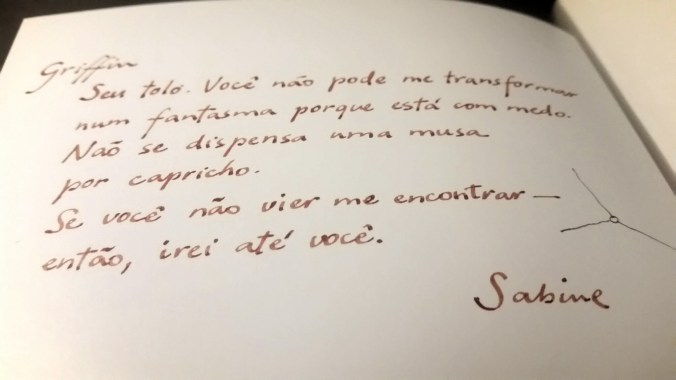 Griffin
Seu tolo. Você não pode me transformar
num fantasma porque está com medo.
Naõ se dispensa uma musa
por capricho.
Se você não vier me encontrar—
então, irei até você.
Sabine